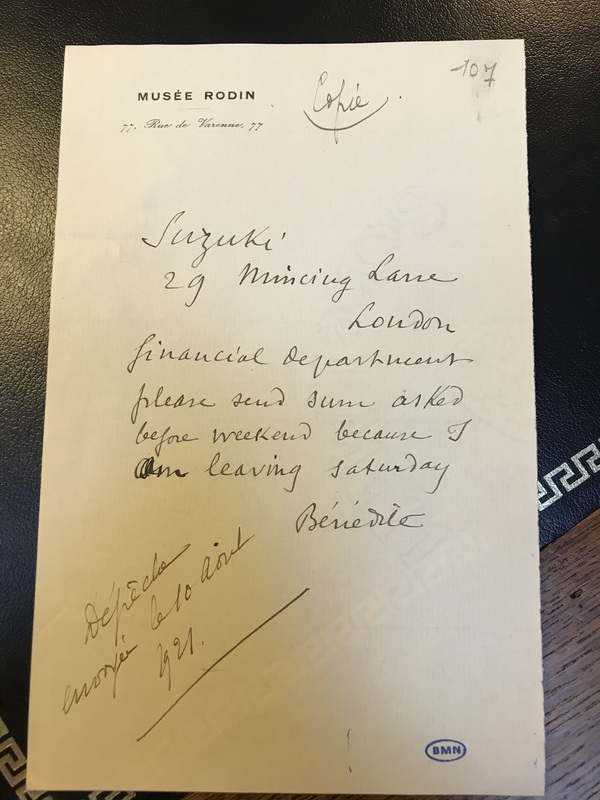 107
MUSÉE RODIN
Copie.
77. Rue de Varenne, 77
Suzuki
29 Mincing Lane
London
financial department
please send sum asked
before weekend because I
am leaving saturday
Bénédite
Dépêche
envoyée le 10 Août
1921.
BMN